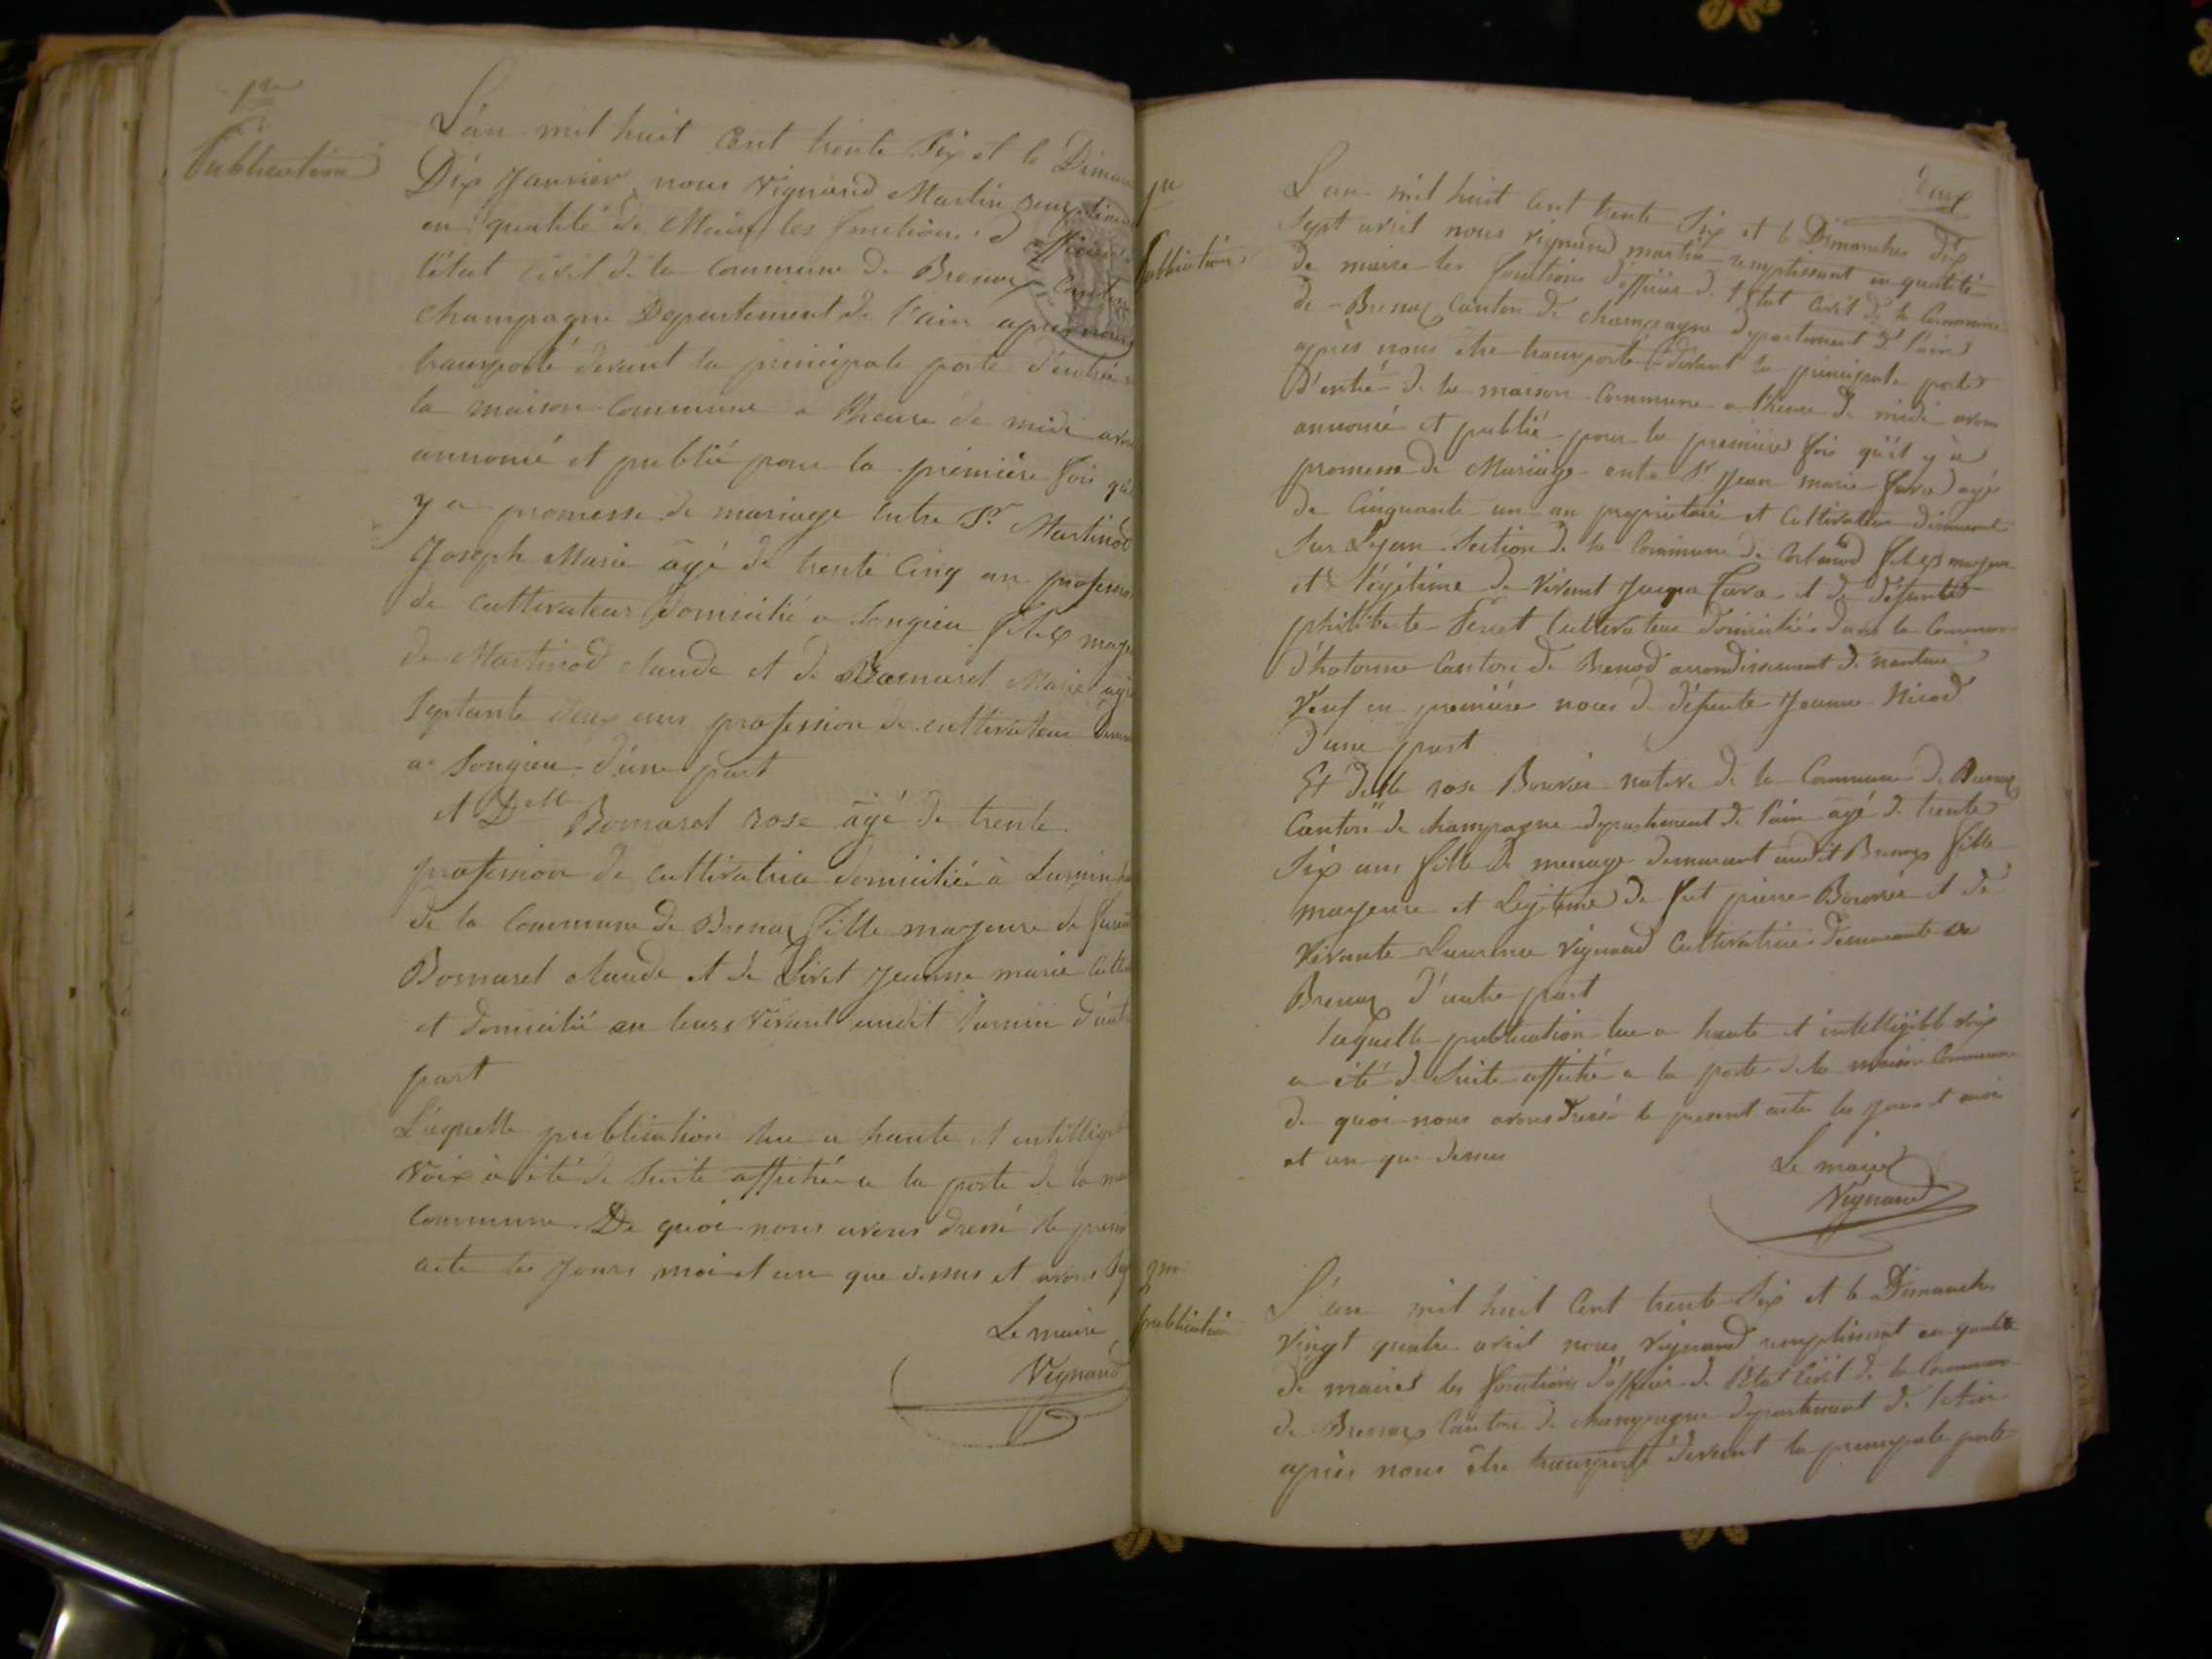 1re
Publication
L'an mil huit Cent trente Six et le Diman
Dix Janvier nous Vignand Martin remplissant
en qualité de Maire les fonctions d'officier d
l'état Civil de la Commune de Brenaz Canton
Champagne Departement de l'ain apres nous
transporté devant la principale porte d'entrée
la maison Commune a l'heure de midi avon
annoncé et publié pour la première fois qu'il
y a promesse de mariage entre Sr Martinod
Joseph Marie âgé de trente Cinq an profession
de cultivateur Domicilié a Songieu fils majeu
de Martinod Claude et de Marie agé
Septante deux ans profession de cultivateur demeu
a Songieu d'une part
et Delle Bornarel rose âgé de trente
profession de cultivatrice domiciliée à
de la Commune de Brenaz fille majeure de
Claude et de Livet Jeanne marie Cult
et domicilié en leurs vivant audit d'aut
part
Laquelle publication lue a haute et intelligib
Voix à été de suite affichée a la porte de la mai
Commune De quoi nous avons dressé le prese
acte les Jours moi et an que dessus et avons Sig
Le maire
Vignand
Deux
1re
Publication
L'an mil huit Cent trente Six et le Dimanches dix
Sept avril nous vignand martin remplissant en qualité
de maire les fonctions d'officier de l'état Civil de la Commune
de Brenaz Canton de champagne departement de l'ain
après nous être transporté devant la principale porte
d'entré de la maison Commune a l'heure de midi avons
annoncé et publié pour la première fois qu'il y a
promesse de Mariage entre Sr Jean marie favre agé
de Cinquante un an propriétaire et Cultivateur demeurant
Sur Lyan Section de la Commune de Corbonod fils majeur
et légitime de vivant Jacque favre et de défunte
philiberte Cultivateur domicilié dans la Commune
d'hotonne Canton de Brenod arrondissement de nantua
Veuf en première noces de défunte Jeanne Nicod
d'une part
Et delle rose Bouvier native de la Commune de Brenaz
Canton de champagne departement de l'ain agé de trente
Six ans fille de menage demeurant audit Brenaz fille
majeure et Légitime de fut pierre Bouvier et de
Vivante Laurence Vignand Cultivatrice demeurante a
Brenaz d'autre part
laquelle publication lue a haute et intelligible voix
a été de Suite affiché a la porte de la maison Commune
de quoi nous avons dressé le present acte les jours et mois
et an que dessus
Le maire
Vignand
2me
publication
L'an mil huit Cent trente Six et le Dimanches
vingt quatre avril nous Vignand remplissant en qualité
de maire les fonctions d'officier de l'état Civil de la Commune
de Brenaz Canton de champagne departement de l'Ain
après nous être transporté devant la principale porte